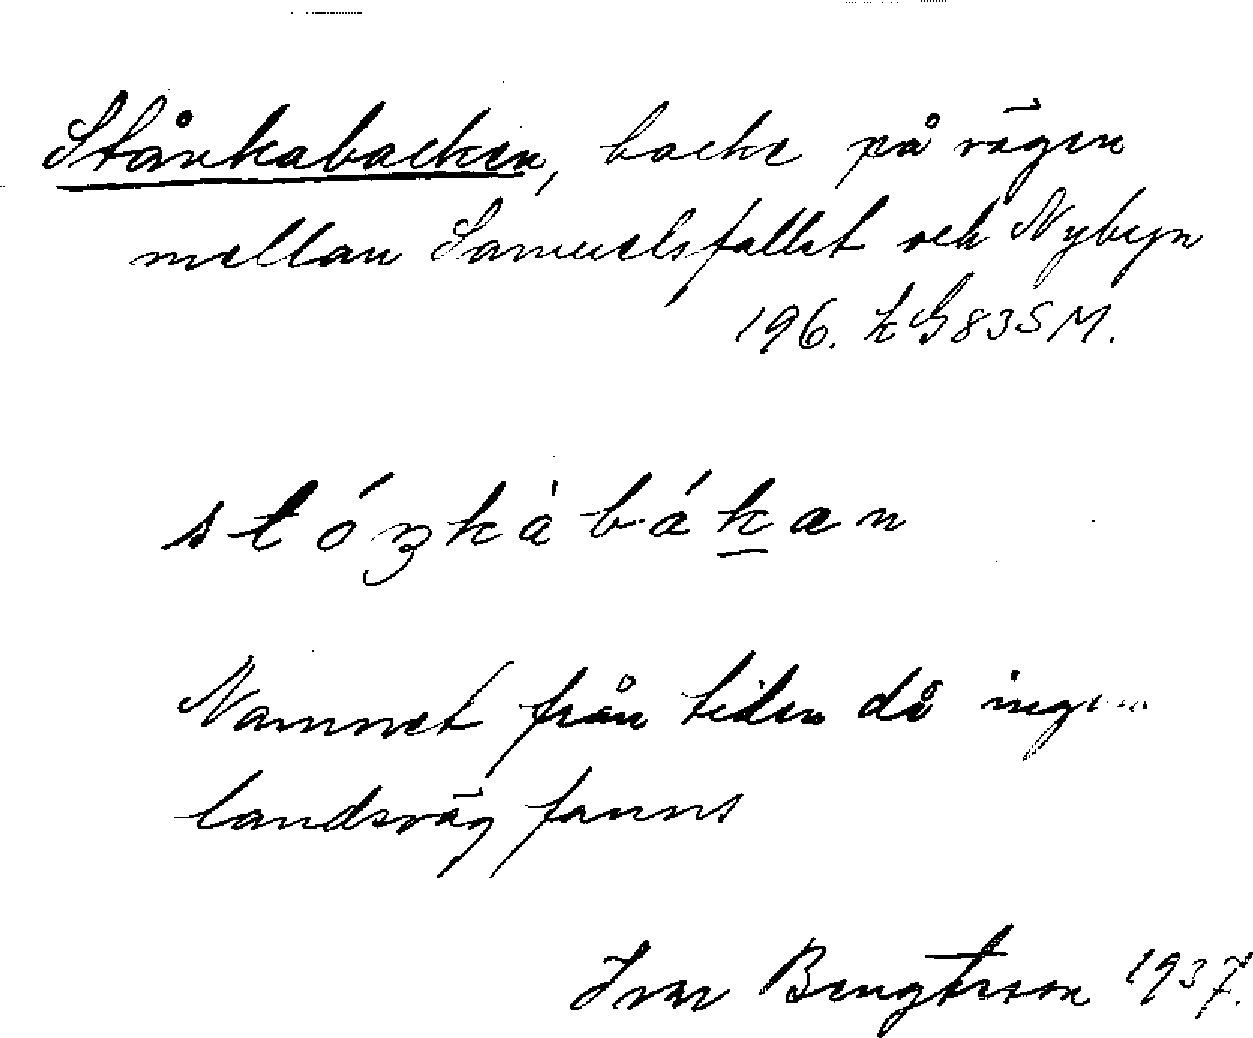 Stånkabacken, backe på vägen
mellan Samuelsfallet och Nybyn
196. EG83SM.
stóŋkàbákan
Namnet från tiden då ingen
landsväg fanns
Ivar Bengtsson 1937.